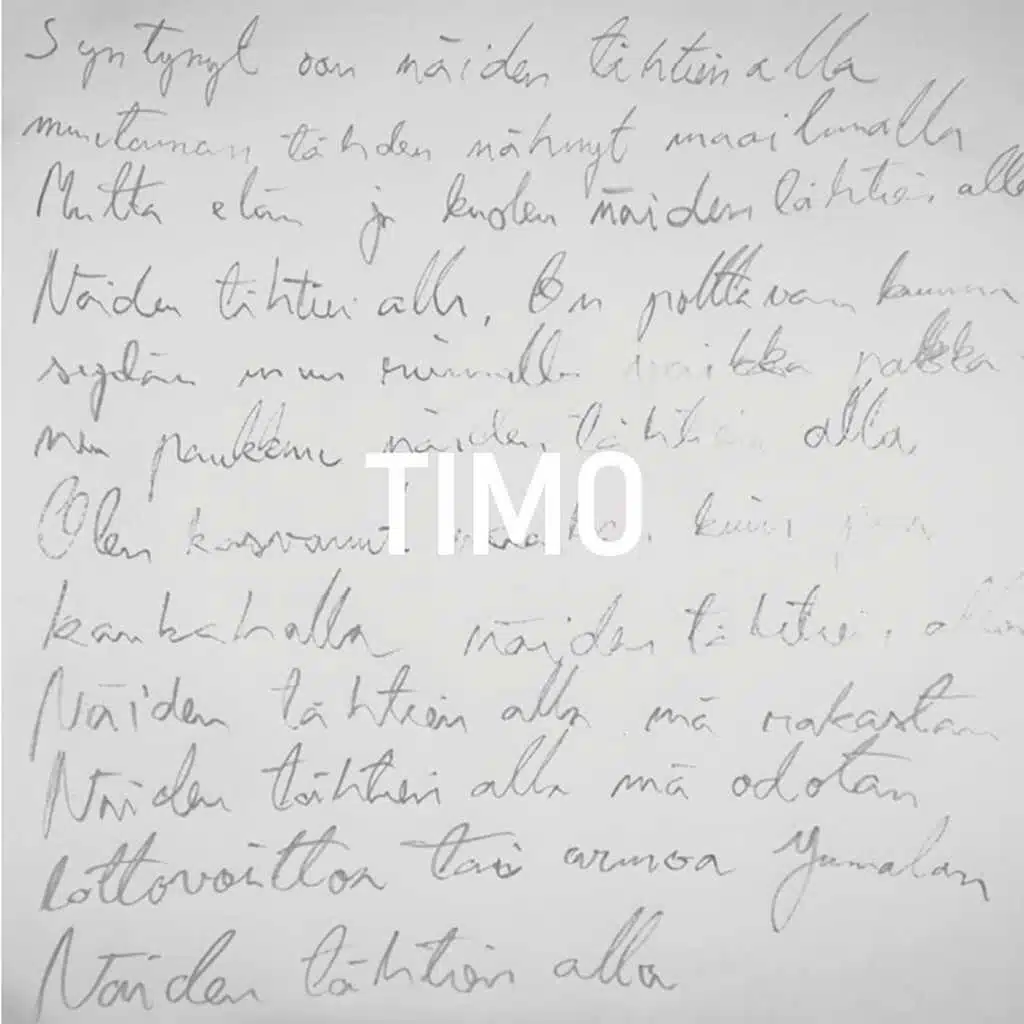 Syntynyt oon näiden tähtien alla
muutaman tähden nähnyt maailmalla
Mutta elän ja kuolen näiden tähtien alla
Näiden tähtien alla, On polttavan kuuma
sydän mun rinnalla vaikka pakka-
nen paukkuu näiden tähtien alla
TIMO
Olen kasvanut kuin puu
kankahalla näiden tähtien alla
Näiden tähtien alla mä rakastan
Näiden tähtien alla mä odotan
Lottovoittoa tai armoa Jumalan
Näiden tähtien alla